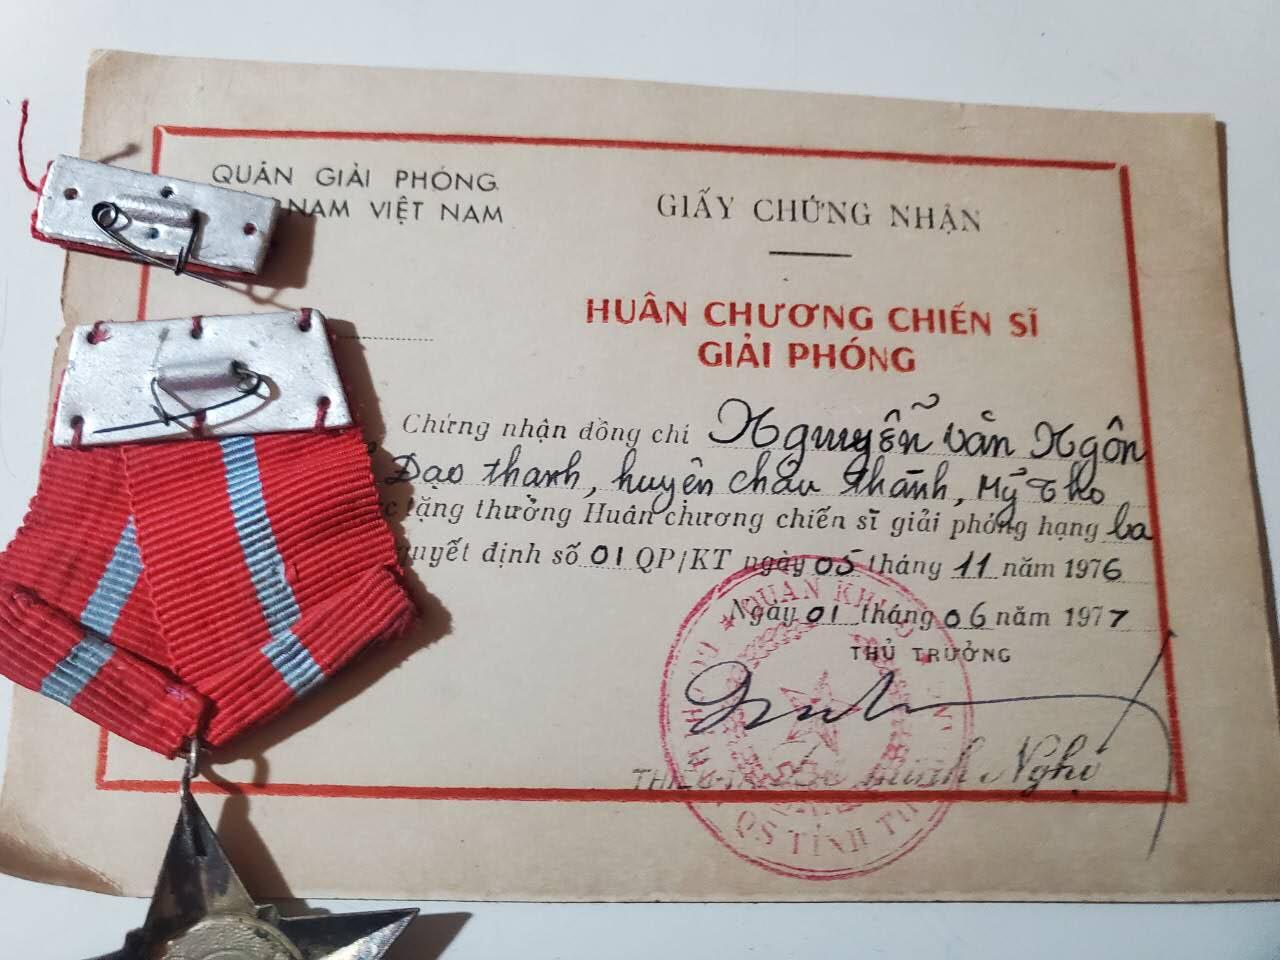 QUÂN GIẢI PHÓNG
NAM VIỆT NAM
GIẤY CHỨNG NHẬN
HUÂN CHƯƠNG CHIẾN SĨ
GIẢI PHÓNG
Chứng nhận đồng chí Nguyễn Văn Ngôn
Đạo thanh, huyện Châu Thành, Mỹ Tho
tặng thưởng Huân chương chiến sĩ giải phóng hạng ba
quyết định số 01 QP/KT ngày 05 tháng 11 năm 1976
Ngày 01 tháng 06 năm 1977
THỦ TRƯỞNG
Minh Nghị
QUÂN KHU
QS TỈNH